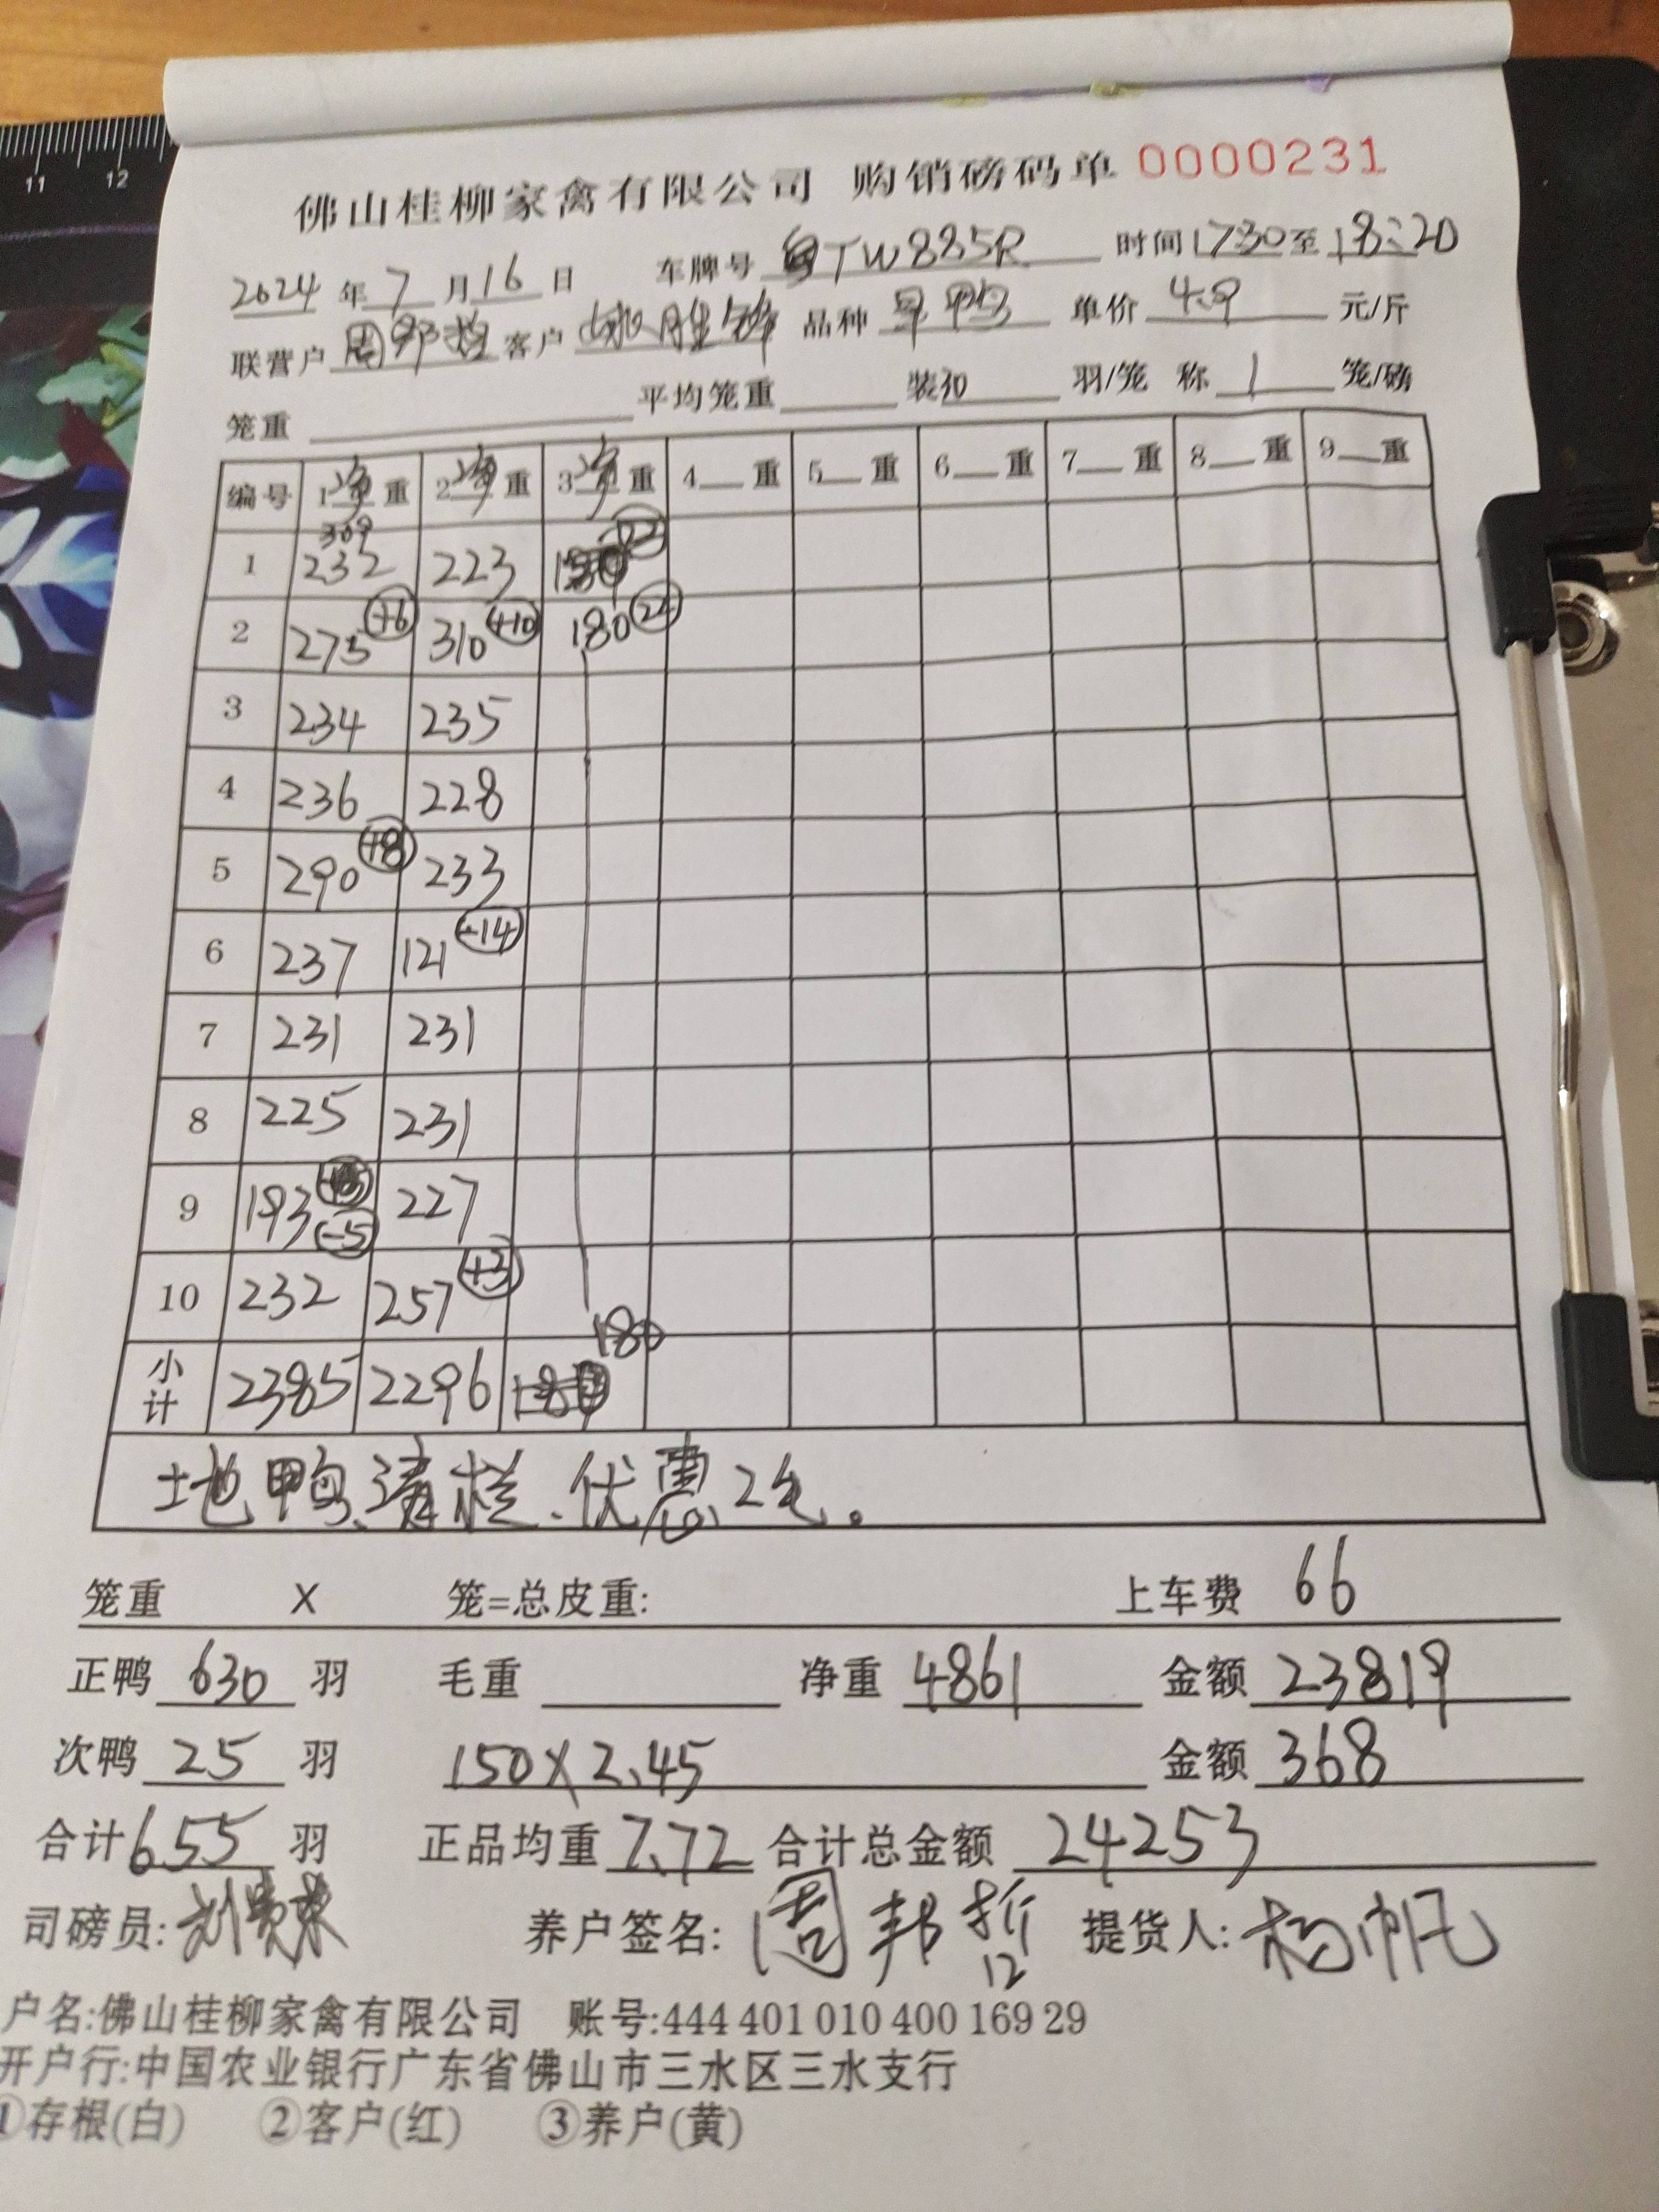 11 12
佛山桂柳家禽有限公司 购销磅码单 0000231
2024 年 7 月 16 日 车牌号 粤TW885R 时间 1730 至 18:20
联营户 周邦哲 客户 姚胜锋 品种 旱鸭 单价 4.9 元/斤
笼重 平均笼重 装 30 羽/笼 称 1 笼/磅
编号 1净重 2净重 3净重 4 重 5 重 6 重 7 重 8 重 9 重
309
1 232 223
2 275 +6 310 +10 180 24
3 234 235
4 236 228
5 290 +8 233
6 237 121 -14
7 231 231
8 225 231
9 193 -5 227
10 232 257 +3
180
小计 2385 2296
土地鸭、清栏、优惠2毛。
笼重 X 笼=总皮重: 上车费 66
正鸭 630 羽 毛重 净重 4861 金额 23819
次鸭 25 羽 150×2.45 金额 368
合计 655 羽 正品均重 7.72 合计总金额 24253
司磅员: 养户签名: 周邦哲 提货人: 杨帆
12
户名:佛山桂柳家禽有限公司 账号:444 401 010 400 169 29
开户行:中国农业银行广东省佛山市三水区三水支行
①存根(白) ②客户(红) ③养户(黄)